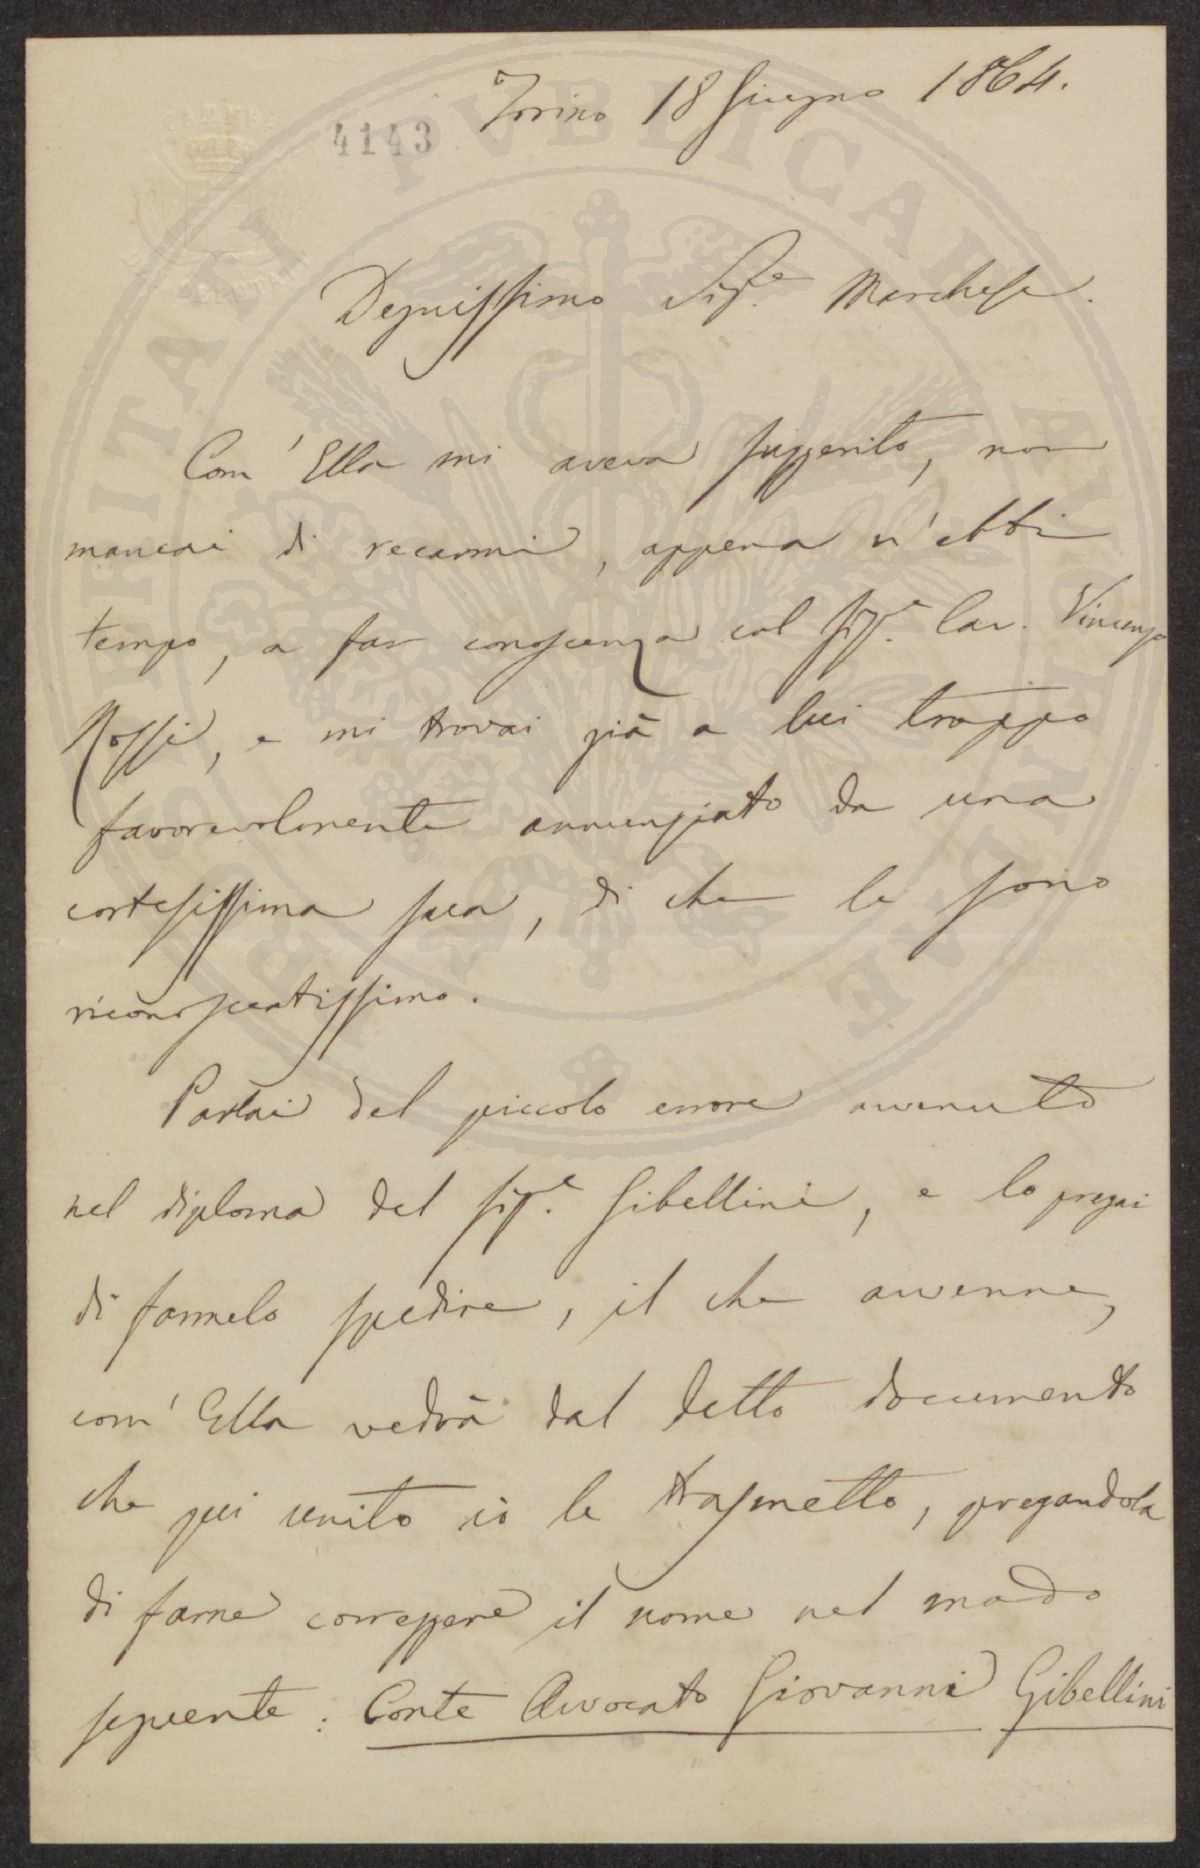 Torino 18 Giugno 1864.
4143
Degnissimo Sig.e Marchese.
Com' Ella mi aveva suggerito, non
mancai di recarmi, appena n'ebbi
tempo, a far conoscenza col Sig.e Cav. Vincenzo
Rossi, e mi trovai già a lui troppo
favorevolmente annunziato da una
cortesissima sua, di che le sono
riconoscentissimo.
Parlai del piccolo errore avvenuto
nel diploma del Sig.e Gibellini, e lo pregai
di farmelo spedire, il che avvenne,
com' Ella vedrà dal detto documento
che qui unito io le trasmetto, pregandola
di farne correggere il nome nel modo
seguente: Conte Avvocato Giovanni Gibellini